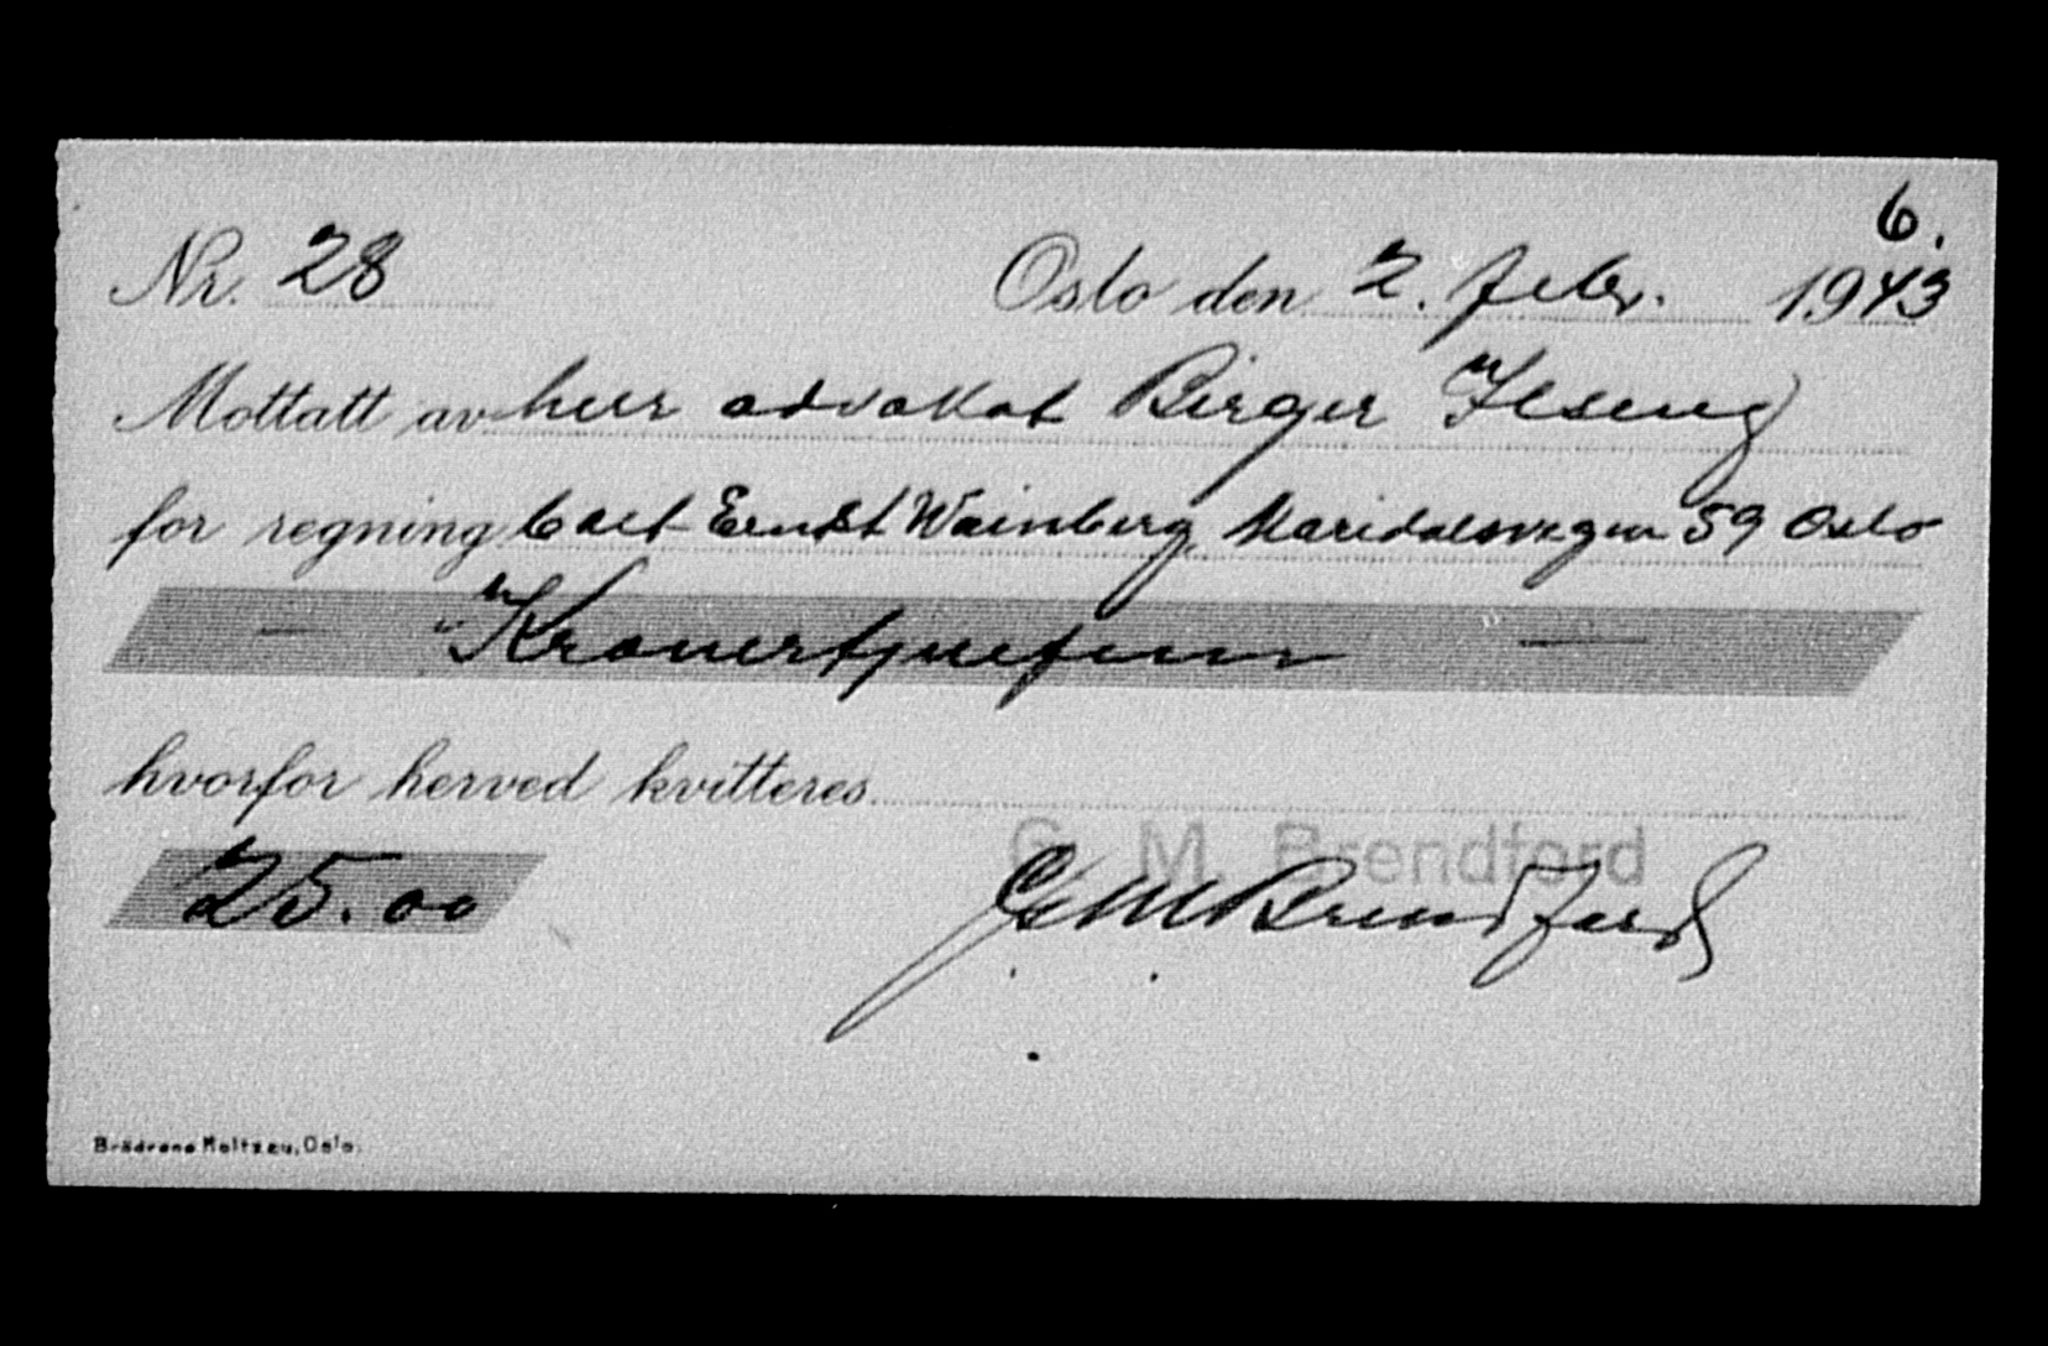 6.
Nr. 28 Oslo den 2. febr. 1943
Mottatt av herr advokat Birger Ilseng
for regning Ernst Wainberg, Maridalsvegen 59 Oslo
— Kronertjuefem —
hvorfor herved kvitteres
G. M. Brendford
25.00 G M Brendford
Brødrene Moltzau, Oslo.